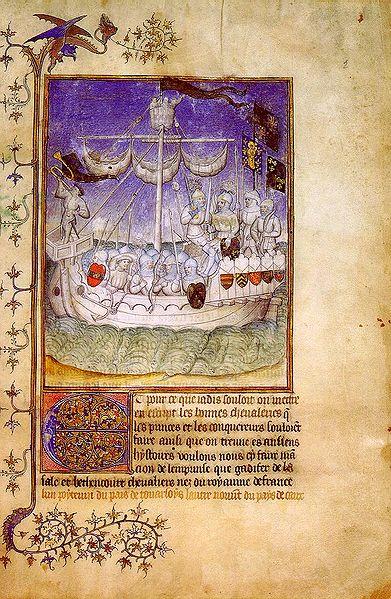 Et pour ce que iadis souloit on mectre
en escript les bonnes cheualeries q̄
les princes et les conquereurs souloient
faire ainsi que on treuue es ansiens
hystoires voulons nous cy faire mā
cion de lemprinse que gadifer de la
sale et bethencourt cheualiers nez du royaume de france
lun poiteuin du pais de touarsoys lautre normt du pays de caux